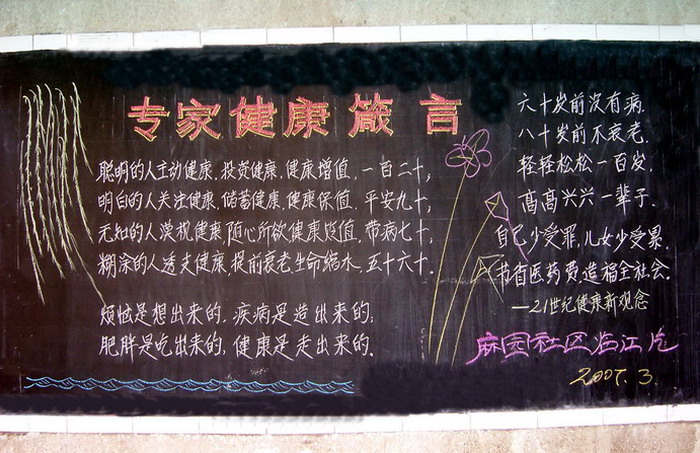 专家健康箴言
聪明的人主动健康，投资健康，健康增值，一百二十；
明白的人关注健康，储蓄健康，健康保值，平安九十；
无知的人漠视健康，随心所欲健康贬值，带病七十；
糊涂的人透支健康，提前衰老，生命缩水，五十六十。
烦恼是想出来的，疾病是造出来的；
肥胖是吃出来的，健康是走出来的。
六十岁前没有病，
八十岁前不衰老，
轻轻松松一百岁，
高高兴兴一辈子，
自己少受罪，儿女少受累，
节省医药费，造福全社会。
——21世纪健康新观念
麻园社区临江片
2007.3